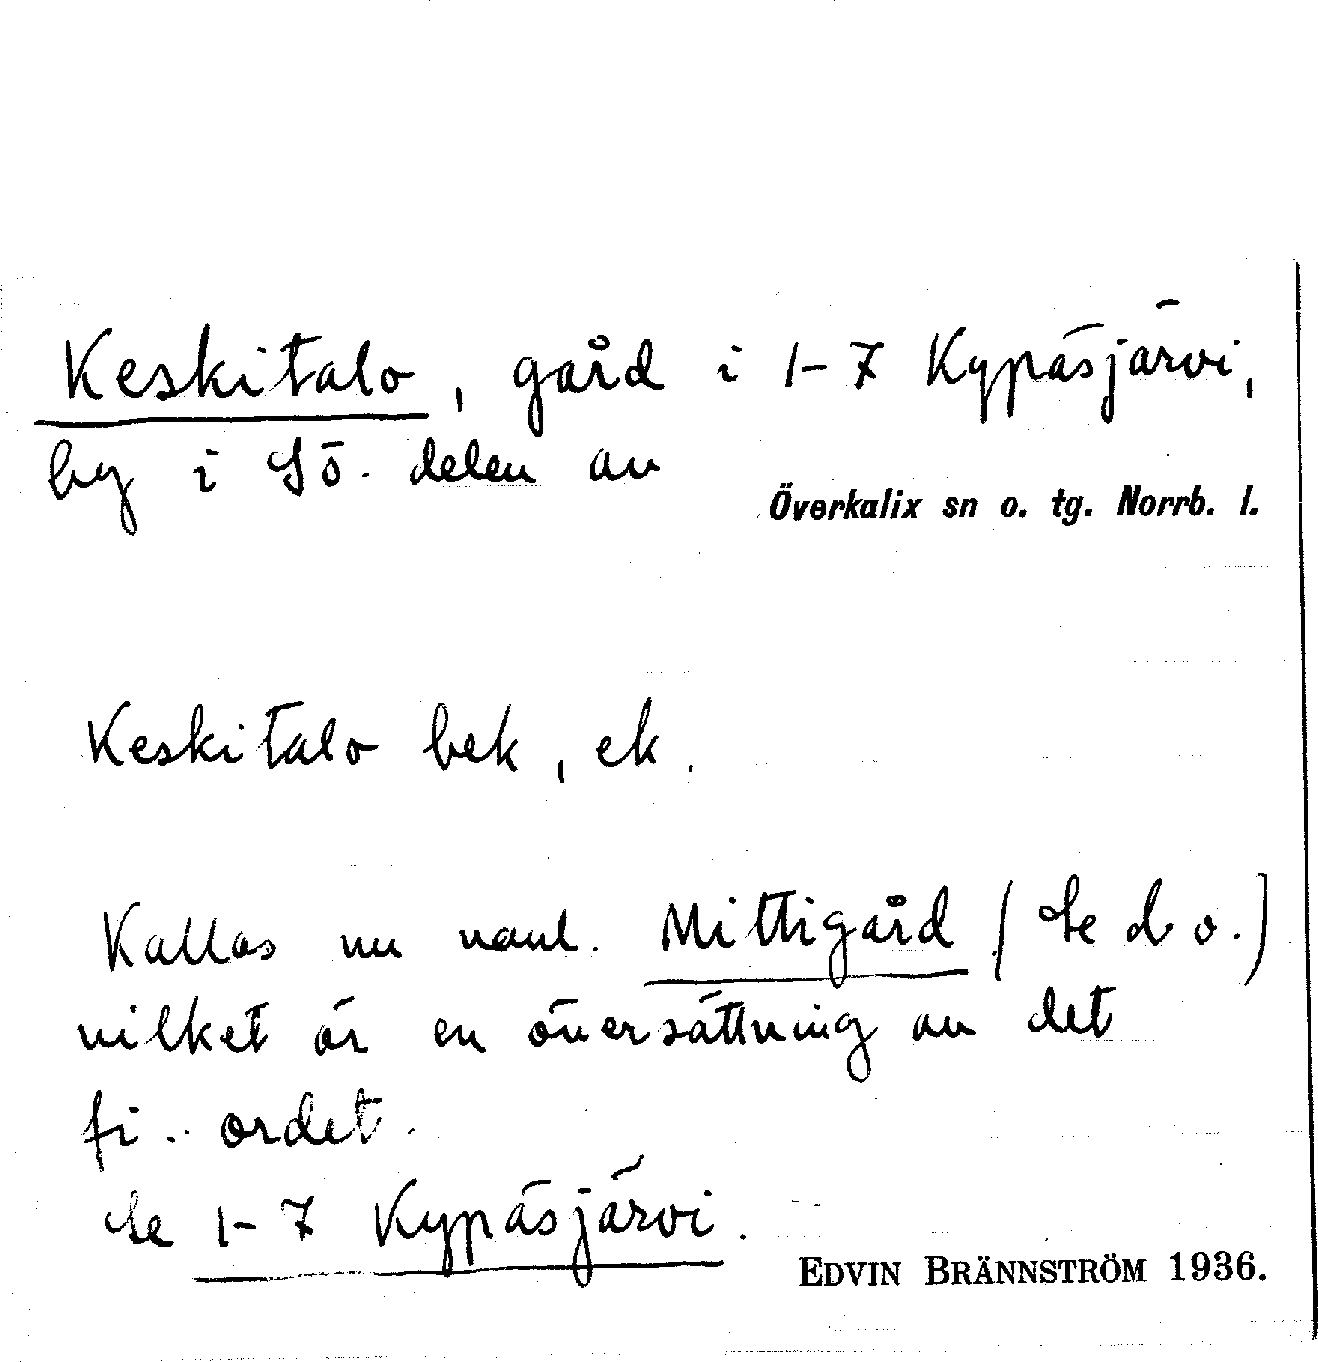 Keskitalo, gård i 1-7 Kypäsjärvi,
by i Sö. delen av
Överkalix sn o. tg. Norrb. l.
Keskitalo bek, ek.
Kallas nu vanl. Mittigård (se d o.)
vilket är en översättning av det
fi.. ordet.
Se 1-7 Kypäsjärvi.
EDVIN BRÄNNSTRÖM 1936.